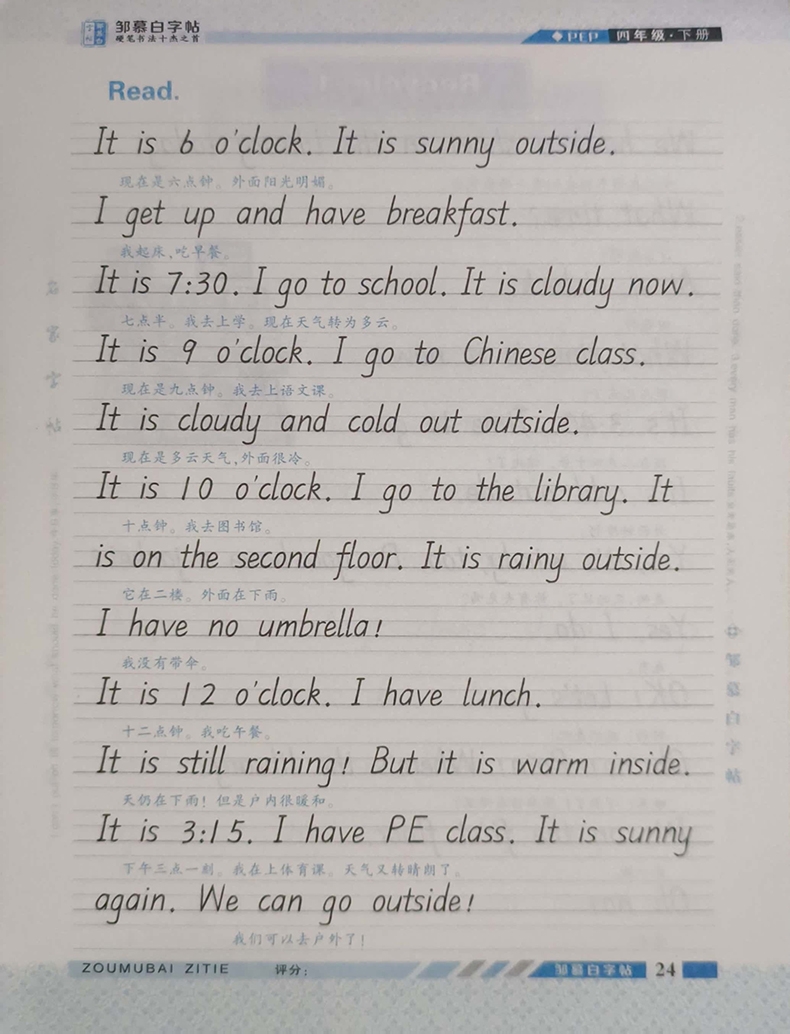 邹慕白字帖
硬笔书法十杰之首
PEP 四年级·下册
Read.
It is 6 o'clock. It is sunny outside.
现在是六点钟。外面阳光明媚。
I get up and have breakfast.
我起床,吃早餐。
It is 7:30. I go to school. It is cloudy now.
七点半。我去上学。现在天气转为多云。
It is 9 o'clock. I go to Chinese class.
现在是九点钟。我去上语文课。
It is cloudy and cold out outside.
现在是多云天气,外面很冷。
It is 10 o'clock. I go to the library. It
十点钟。我去图书馆。
is on the second floor. It is rainy outside.
它在二楼。外面在下雨。
I have no umbrella!
我没有带伞。
It is 12 o'clock. I have lunch.
十二点钟。我吃午餐。
It is still raining! But it is warm inside.
天仍在下雨!但是户内很暖和。
It is 3:15. I have PE class. It is sunny
下午三点一刻。我在上体育课。天气又转晴朗了。
again. We can go outside!
我们可以去户外了!
ZOUMUBAI ZITIE 评分: 邹慕白字帖 24